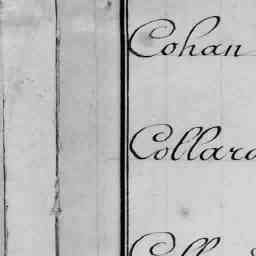 Cohan
Collard